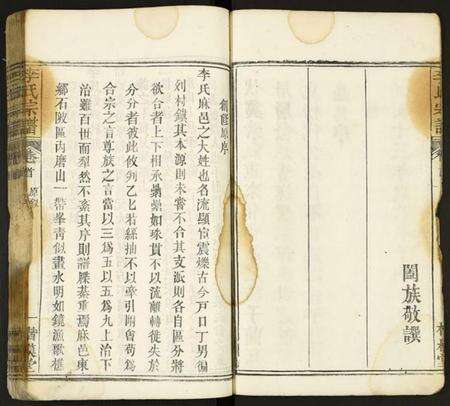 闔族敬譔
李氏宗譜
創修原序
李氏麻邑之大姓也名流顯宦震爍古今戸口丁男徧
列村鎮其本源則未嘗不合其支派則各自區分將
欲合者上下相承纍纍如珠貫不以流離轉徙失於
分分者彼此攸列乙乙若絲抽不以牽引附會苟爲
合宗之言尊族之言當以三爲五以五爲九上治下
治雖百世而犁然不紊其序則譜牒綦重焉麻邑東
鄉石陂區內磨山一帶峯靑似畫水明如鏡漁歌樵
李氏宗譜
卷首
原序
一